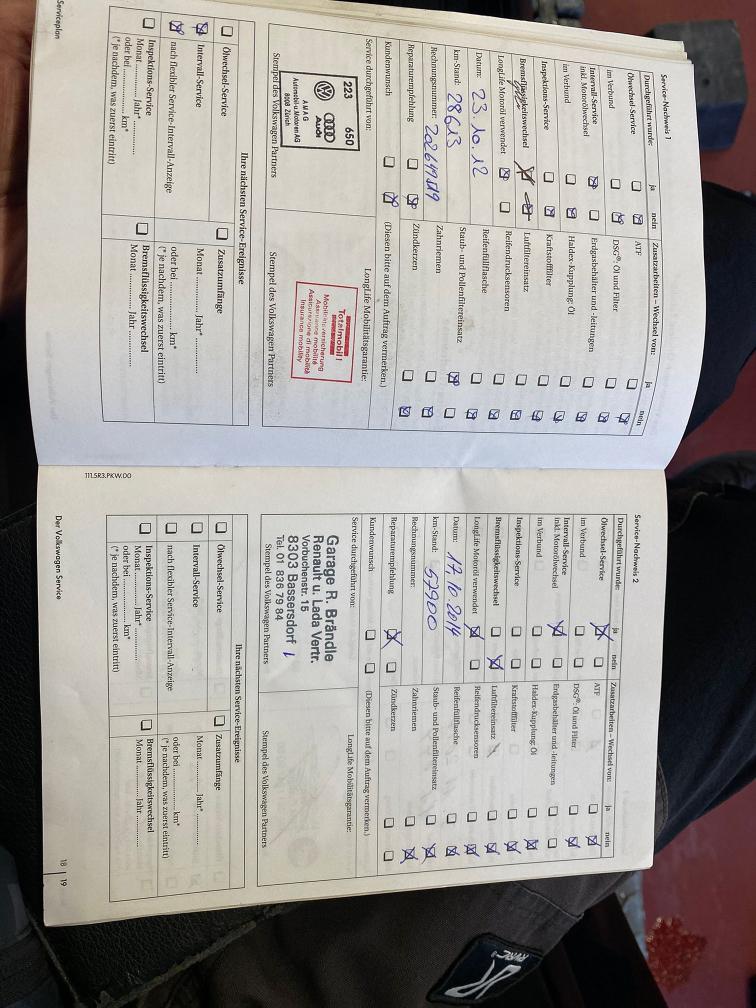 Service-Nachweis 1
Durchgeführt wurde: ja nein
Ölwechsel-Service
im Verbund
Intervall-Service
inkl. Motorölwechsel
im Verbund
Inspektions-Service
Bremsflüssigkeitswechsel
LongLife Motoröl verwendet
Datum: 23.10.12
km-Stand: 28613
Rechnungsnummer:
Reparaturempfehlung
Kundenwunsch
Zusatzarbeiten – Wechsel von: ja nein
ATF
DSG®: Öl und Filter
Erdgasbehälter und -leitungen
Haldex-Kupplung: Öl
Kraftstofffilter
Luftfiltereinsatz
Reifendrucksensoren
Reifenfüllflasche
Staub- und Pollenfiltereinsatz
Zahnriemen
Zündkerzen
(Diesen bitte auf dem Auftrag vermerken.)
Service durchgeführt von:
223 650
Audi
AMAG
Automobil- u. Motoren AG
8008 Zürich
Stempel des Volkswagen Partners
LongLife Mobilitätsgarantie:
Totalmobil!
Mobilitätsversicherung
Assurance mobilité
Assicurazione di mobilità
Insurance mobility
Stempel des Volkswagen Partners
Ihre nächsten Service-Ereignisse
Ölwechsel-Service
Intervall-Service
nach flexibler Service-Intervall-Anzeige
Inspektions-Service
Monat ............ Jahr* ............
oder bei ............ km*
(* je nachdem, was zuerst eintritt)
Zusatzumfänge
Monat ............ Jahr* ............
oder bei ............ km*
(* je nachdem, was zuerst eintritt)
Bremsflüssigkeitswechsel
Monat ............ Jahr ............
Serviceplan
Service-Nachweis 2
Durchgeführt wurde: ja nein
Ölwechsel-Service
im Verbund
Intervall-Service
inkl. Motorölwechsel
im Verbund
Inspektions-Service
Bremsflüssigkeitswechsel
LongLife Motoröl verwendet
Datum: 17.10.2014
km-Stand: 57900
Rechnungsnummer:
Reparaturempfehlung
Kundenwunsch
Zusatzarbeiten – Wechsel von: ja nein
ATF
DSG®: Öl und Filter
Erdgasbehälter und -leitungen
Haldex-Kupplung: Öl
Kraftstofffilter
Luftfiltereinsatz
Reifendrucksensoren
Reifenfüllflasche
Staub- und Pollenfiltereinsatz
Zahnriemen
Zündkerzen
(Diesen bitte auf dem Auftrag vermerken.)
Service durchgeführt von:
Garage R. Brändle
Renault u. Lada Vertr.
Vorbuchenstr. 15
8303 Bassersdorf
Tel. 01 836 79 84
Stempel des Volkswagen Partners
LongLife Mobilitätsgarantie:
Stempel des Volkswagen Partners
Ihre nächsten Service-Ereignisse
Ölwechsel-Service
Intervall-Service
nach flexibler Service-Intervall-Anzeige
Inspektions-Service
Monat ............ Jahr* ............
oder bei ............ km*
(* je nachdem, was zuerst eintritt)
Zusatzumfänge
Monat ............ Jahr* ............
oder bei ............ km*
(* je nachdem, was zuerst eintritt)
Bremsflüssigkeitswechsel
Monat ............ Jahr ............
111.5R3.PKW.00
Der Volkswagen Service
18 | 19